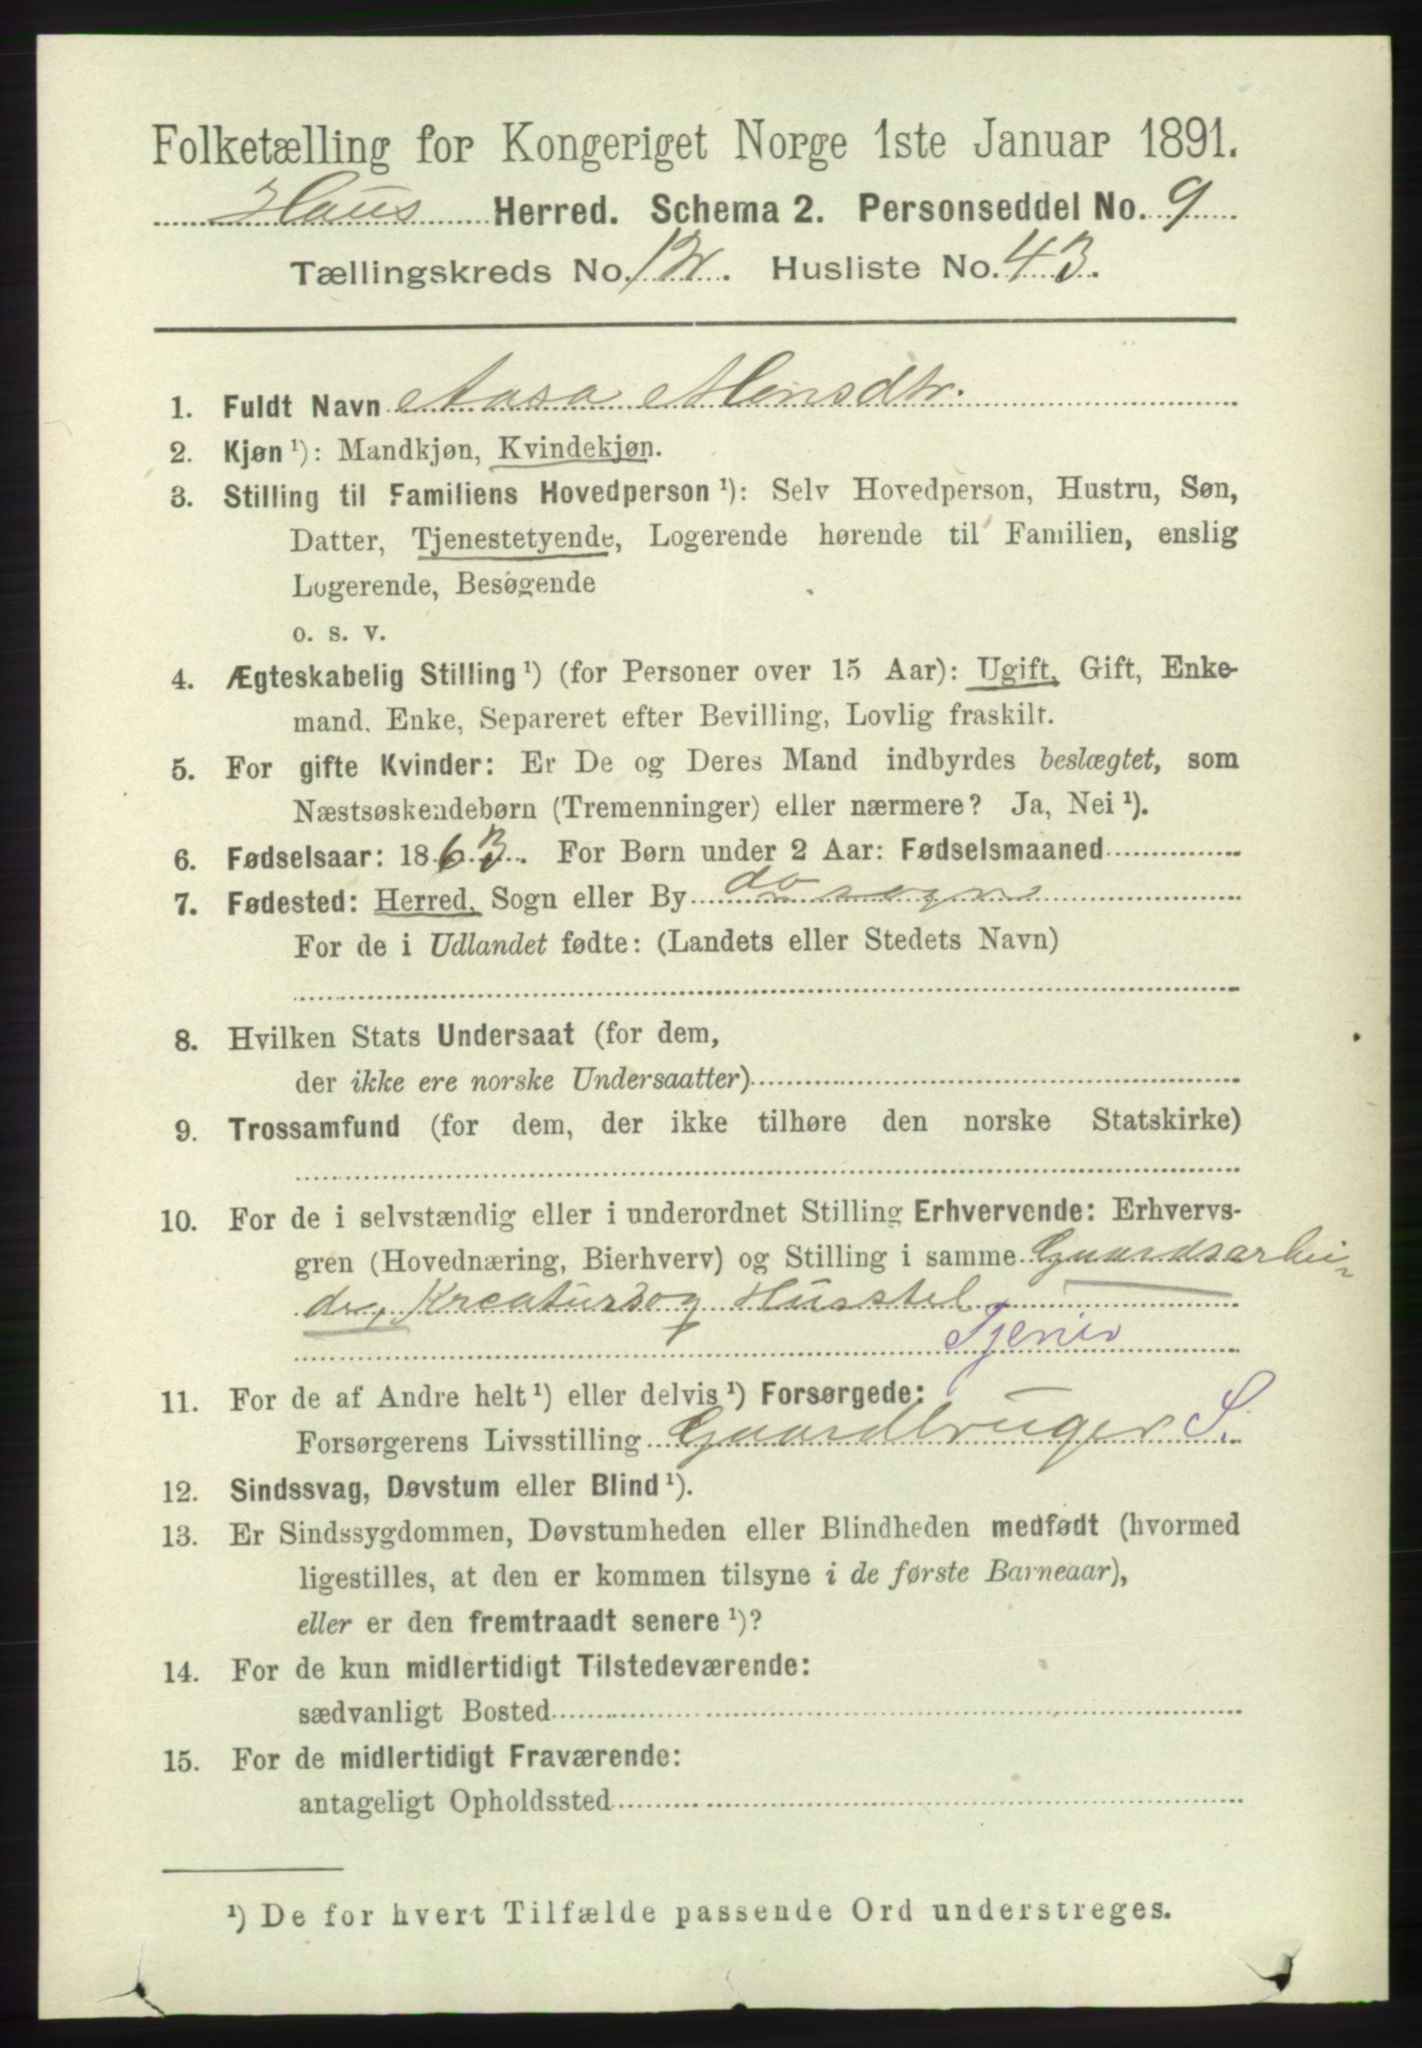 Folketælling for Kongeriget Norge 1ste Januar 1891.
Haus Herred. Schema 2. Personseddel No. 9
Tællingskreds No. 12. Husliste No. 43.
1. Fuldt Navn Aasa Monsdtr.
2. Kjøn ¹): Mandkjøn, Kvindekjøn.
3. Stilling til Familiens Hovedperson ¹): Selv Hovedperson, Hustru, Søn,
Datter, Tjenestetyende, Logerende hørende til Familien, enslig
Logerende, Besøgende
o. s. v.
4. Ægteskabelig Stilling ¹) (for Personer over 15 Aar): Ugift, Gift, Enke-
mand, Enke, Separeret efter Bevilling, Lovlig fraskilt.
5. For gifte Kvinder: Er De og Deres Mand indbyrdes beslægtet, som
Næstsøskendebørn (Tremenninger) eller nærmere? Ja, Nei ¹).
6. Fødselsaar: 1863. For Børn under 2 Aar: Fødselsmaaned
7. Fødested: Herred, Sogn eller By do sogn
For de i Udlandet fødte: (Landets eller Stedets Navn)
8. Hvilken Stats Undersaat (for dem,
der ikke ere norske Undersaatter)
9. Trossamfund (for dem, der ikke tilhøre den norske Statskirke)
10. For de i selvstændig eller i underordnet Stilling Erhvervende: Erhvervs-
gren (Hovednæring, Bierhverv) og Stilling i samme Gaardsarbei-
de, Kreaturs og Husstel
Tjener
11. For de af Andre helt ¹) eller delvis ¹) Forsørgede:
Forsørgerens Livsstilling Gaardbruger S.
12. Sindssvag, Døvstum eller Blind ¹).
13. Er Sindssygdommen, Døvstumheden eller Blindheden medfødt (hvormed
ligestilles, at den er kommen tilsyne i de første Barneaar),
eller er den fremtraadt senere ¹)?
14. For de kun midlertidigt Tilstedeværende:
sædvanligt Bosted
15. For de midlertidigt Fraværende:
antageligt Opholdssted
¹) De for hvert Tilfælde passende Ord understreges.